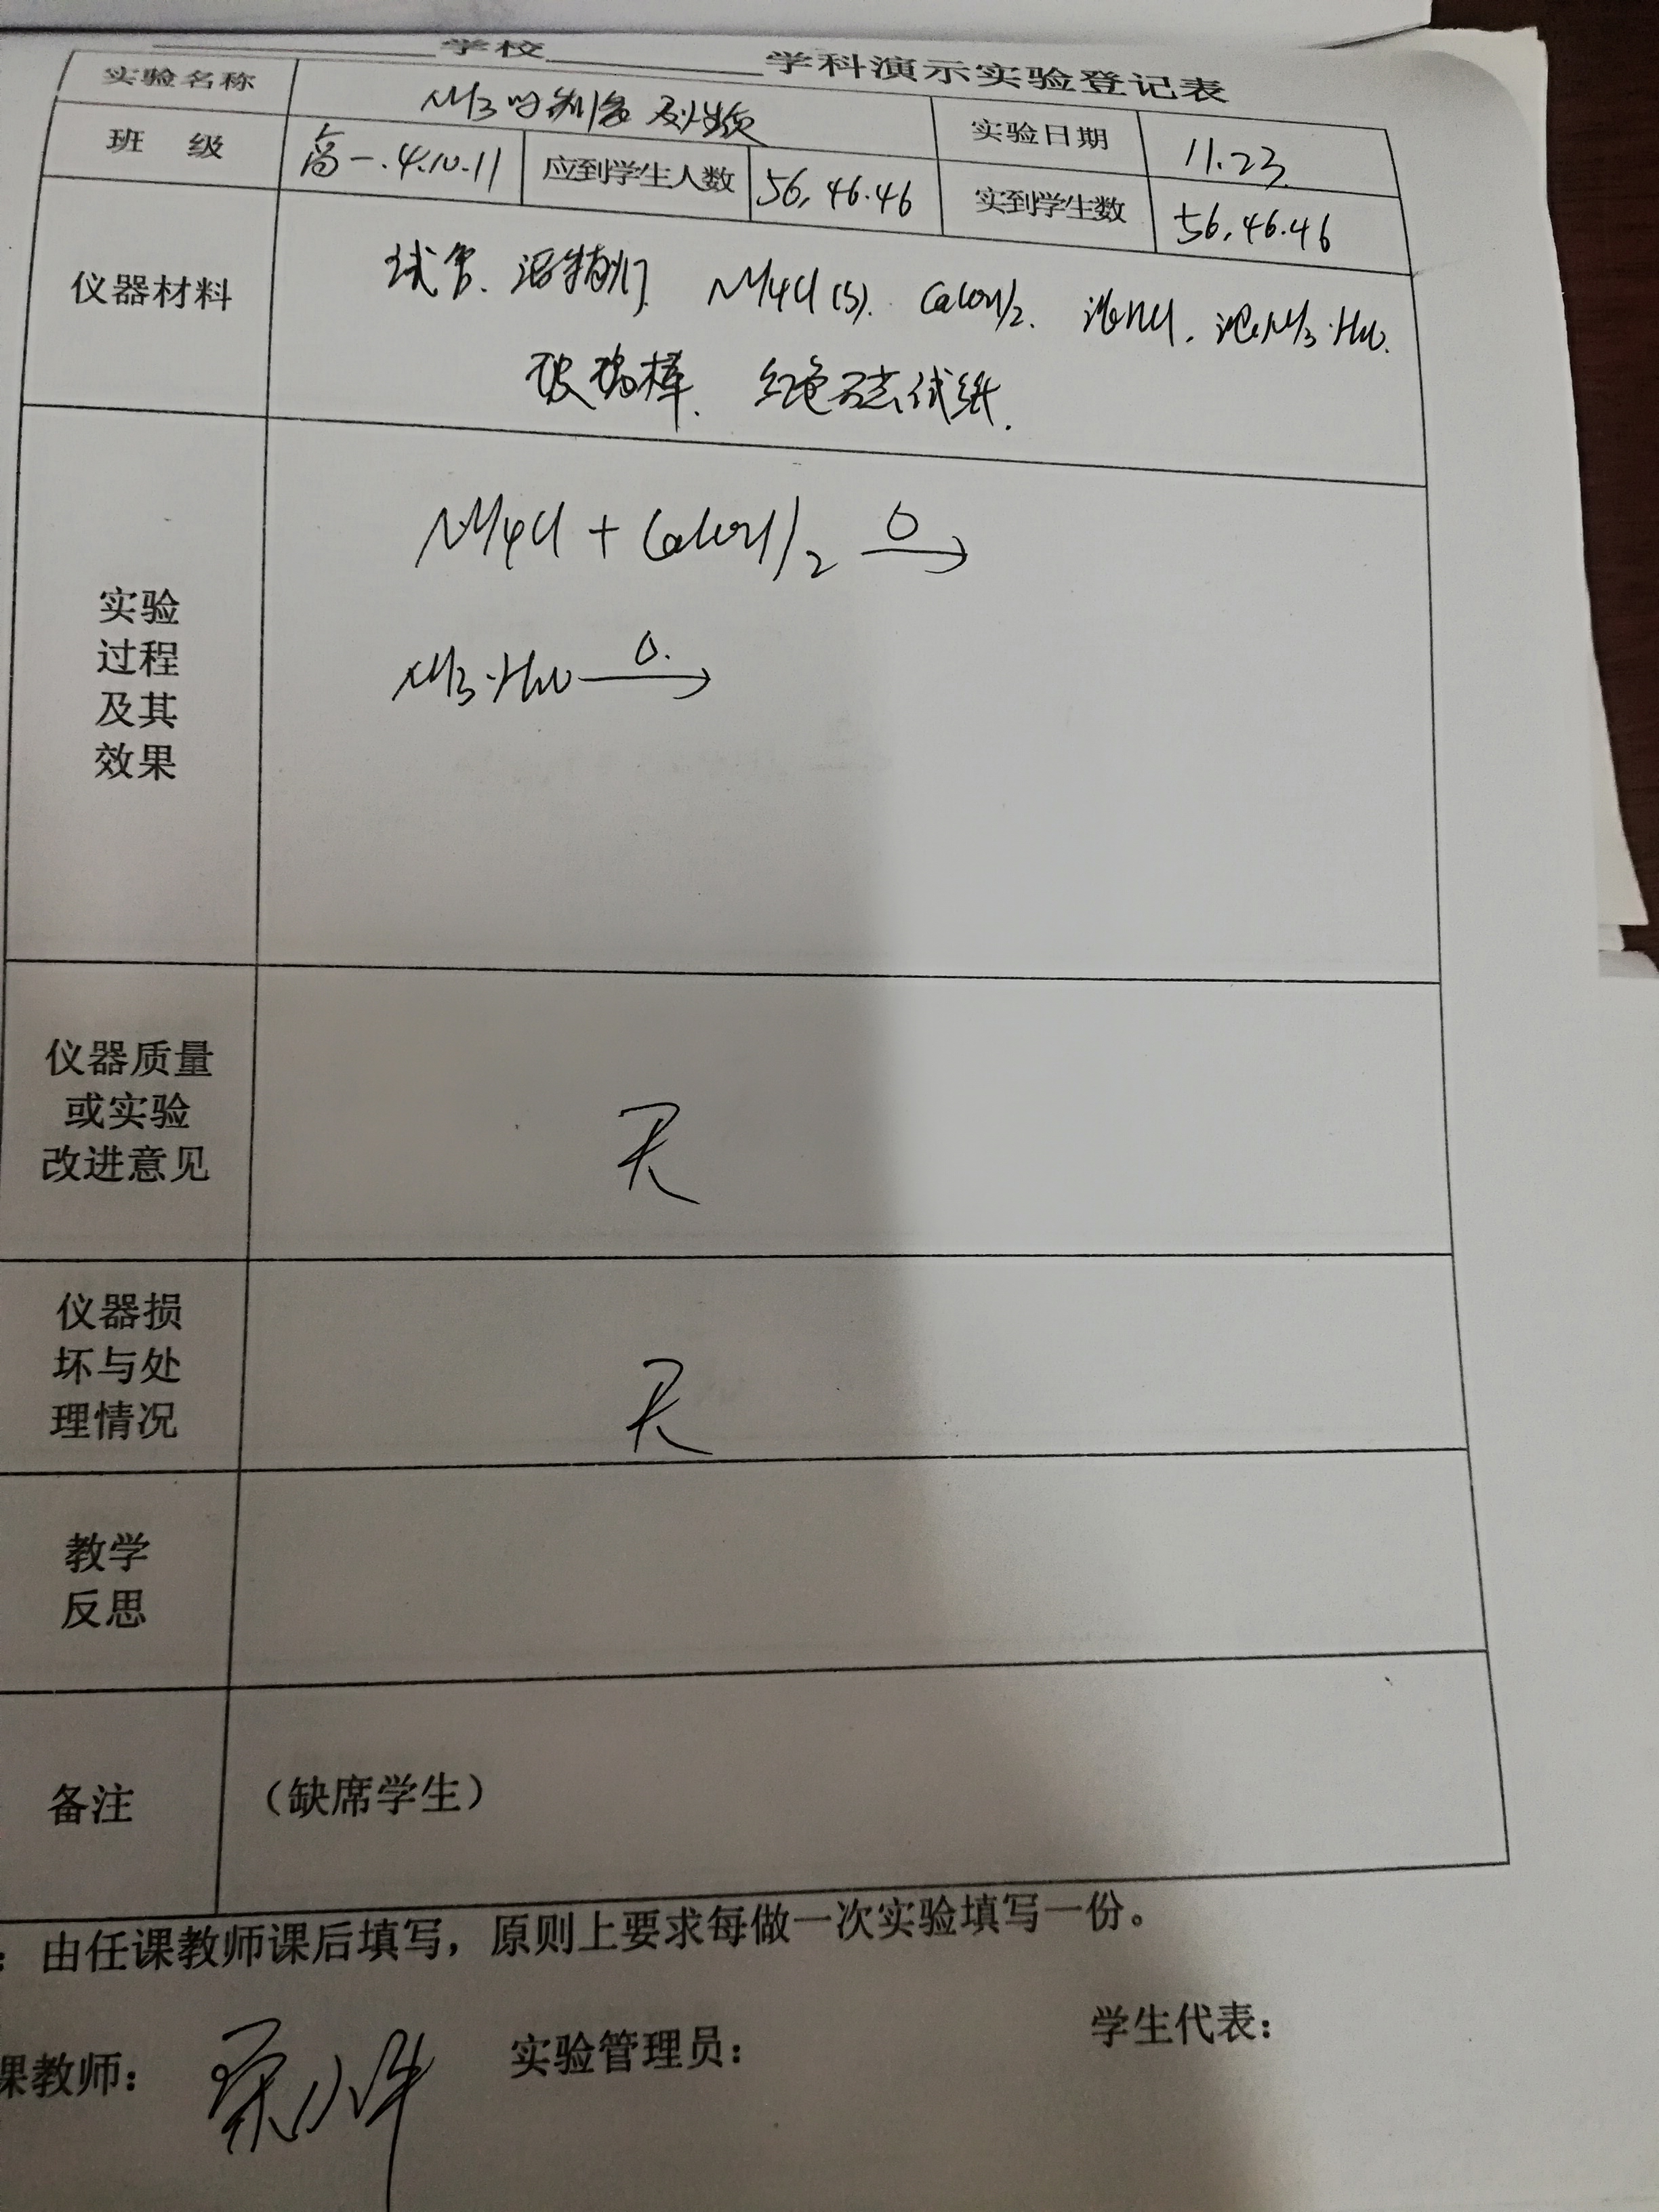 学校 学科演示实验登记表
实验名称 NH3的制备及性质 实验日期 11.23.
班 级 高一.4.10.11 应到学生人数 56,46.46 实到学生数 56,46.46
仪器材料 试管、酒精灯 NH4Cl(s). Ca(OH)2. 浓HCl. 浓NH3·H2O.
玻璃棒. 红色石蕊试纸.
实验
过程
及其
效果
NH4Cl + Ca(OH)2 △→
NH3·H2O △→
仪器质量
或实验
改进意见
无
仪器损
坏与处
理情况
无
教学
反思
备注 (缺席学生)
：由任课教师课后填写，原则上要求每做一次实验填写一份。
课教师： 实验管理员： 学生代表：